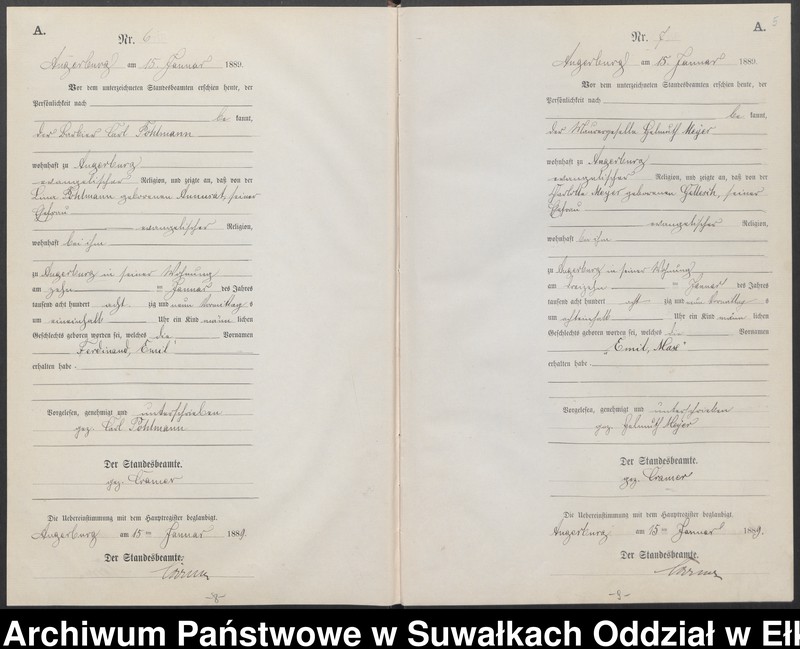 A.
Nr. 6
Angerburg am 15 Januar 1889.
Vor dem unterzeichneten Standesbeamten erschien heute, der
Persönlichkeit nach
be kannt,
der Barbier Carl Pohlmann
wohnhaft zu Angerburg
evangelischer Religion, und zeigte an, daß von der
Lina Pohlmann geborenen Annurat, seiner
Ehefrau
evangelischer Religion,
wohnhaft bei ihm
zu Angerburg in seiner Wohnung
am zehn ten Januar des Jahres
tausend acht hundert acht zig und neun Vormittag s
um eineinhalb Uhr ein Kind männ lichen
Geschlechts geboren worden sei, welches die Vornamen
Ferdinand, Emil
erhalten habe
Vorgelesen, genehmigt und unterschrieben
gez. Carl Pohlmann
Der Standesbeamte.
gez. Cramer
Die Uebereinstimmung mit dem Hauptregister beglaubigt.
Angerburg am 15ten Januar 1889.
Der Standesbeamte.
-8-
A.
Nr. 7
Angerburg am 15 Januar 1889.
Vor dem unterzeichneten Standesbeamten erschien heute, der
Persönlichkeit nach
be kannt,
der Maurergeselle Helmuth Meyer
wohnhaft zu Angerburg
evangelischer Religion, und zeigte an, daß von der
Charlotte Meyer geborenen seiner
Ehefrau
evangelischer Religion,
wohnhaft bei ihm
zu Angerburg in seiner Wohnung
am dreizehn ten Januar des Jahres
tausend acht hundert acht zig und neun Vormittag s
um achteinhalb Uhr ein Kind männ lichen
Geschlechts geboren worden sei, welches die Vornamen
„Emil, Max"
erhalten habe.
Vorgelesen, genehmigt und unterschrieben
gez. Helmuth Meyer
Der Standesbeamte.
gez. Cramer
Die Uebereinstimmung mit dem Hauptregister beglaubigt.
Angerburg am 15ten Januar 1889.
Der Standesbeamte.
-9-
Archiwum Państwowe w Suwałkach Oddział w Ełk